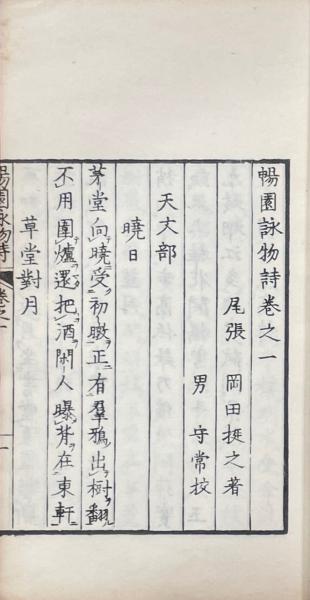 暢園詠物詩卷之一
尾張 岡田挺之著
男 守常挍
天文部
曉日
茅堂向曉受初暾正有羣鴉出樹翻
不用圍爐還把酒閑人曝背在東軒
草堂對月
暢園詠物詩 卷之一 一